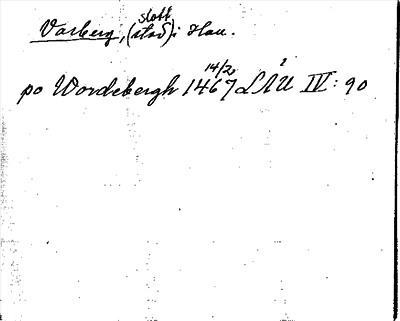 slott
Varberg, (stad) i Hall.
14/2
po Wordebergh 1467 LÅU IV: 90